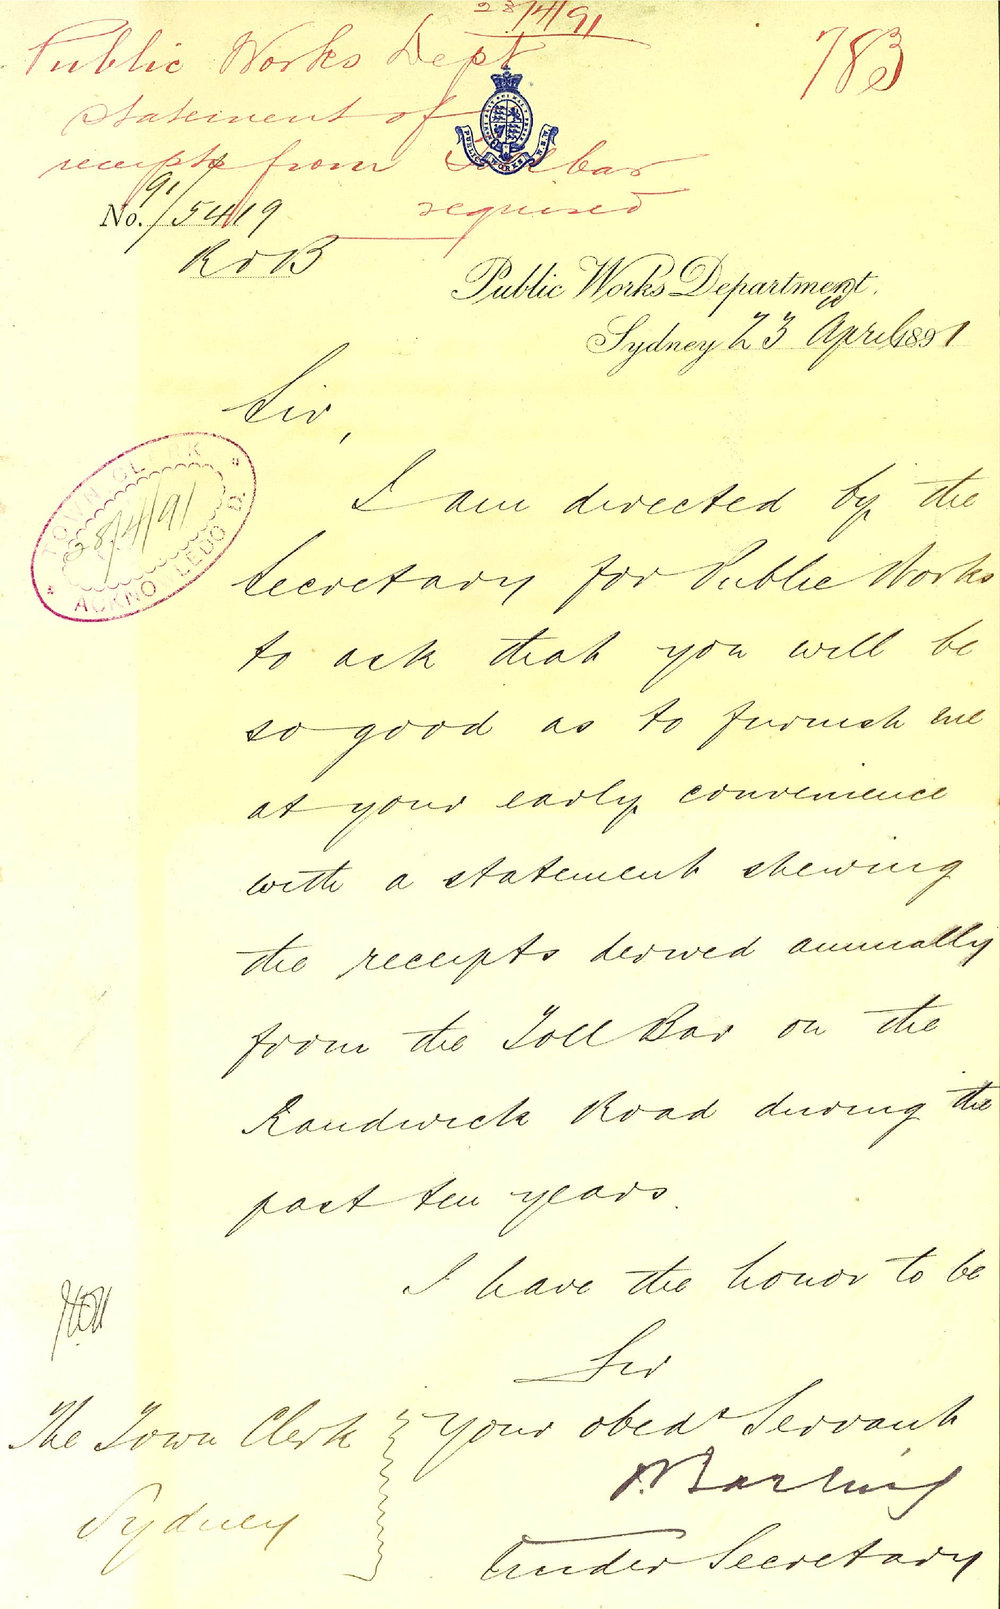 28/4/91
783
Public Works Dept
statement of
receipts from Toll bar
required
PUBLIC WORKS N.S.W.
No. 91/5419
R & B
Public Works Department.
Sydney 23 April 1891
Sir,
TOWN CLERK
28/4/91
ACKNOWLEDGED
I am directed by the
Secretary for Public Works
to ask that you will be
so good as to furnish me
at your early convenience
with a statement shewing
the receipts derived annually
from the Toll Bar on the
Randwick Road during the
past ten years.
I have the honor to be
Sir
Your obedt Servant
Barling
Under Secretary
The Town Clerk
Sydney